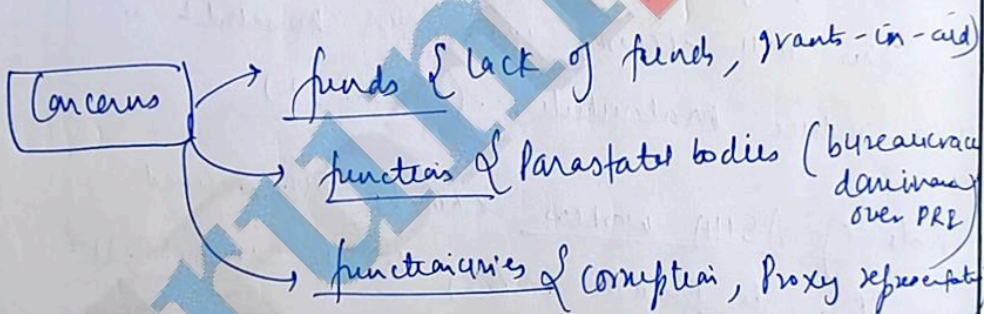 Concerns
funds { lack of funds, grants-in-aid)
functions { Parastatal bodies (bureaucracy
dominance
over PRI
functionaries { corruption, Proxy representat